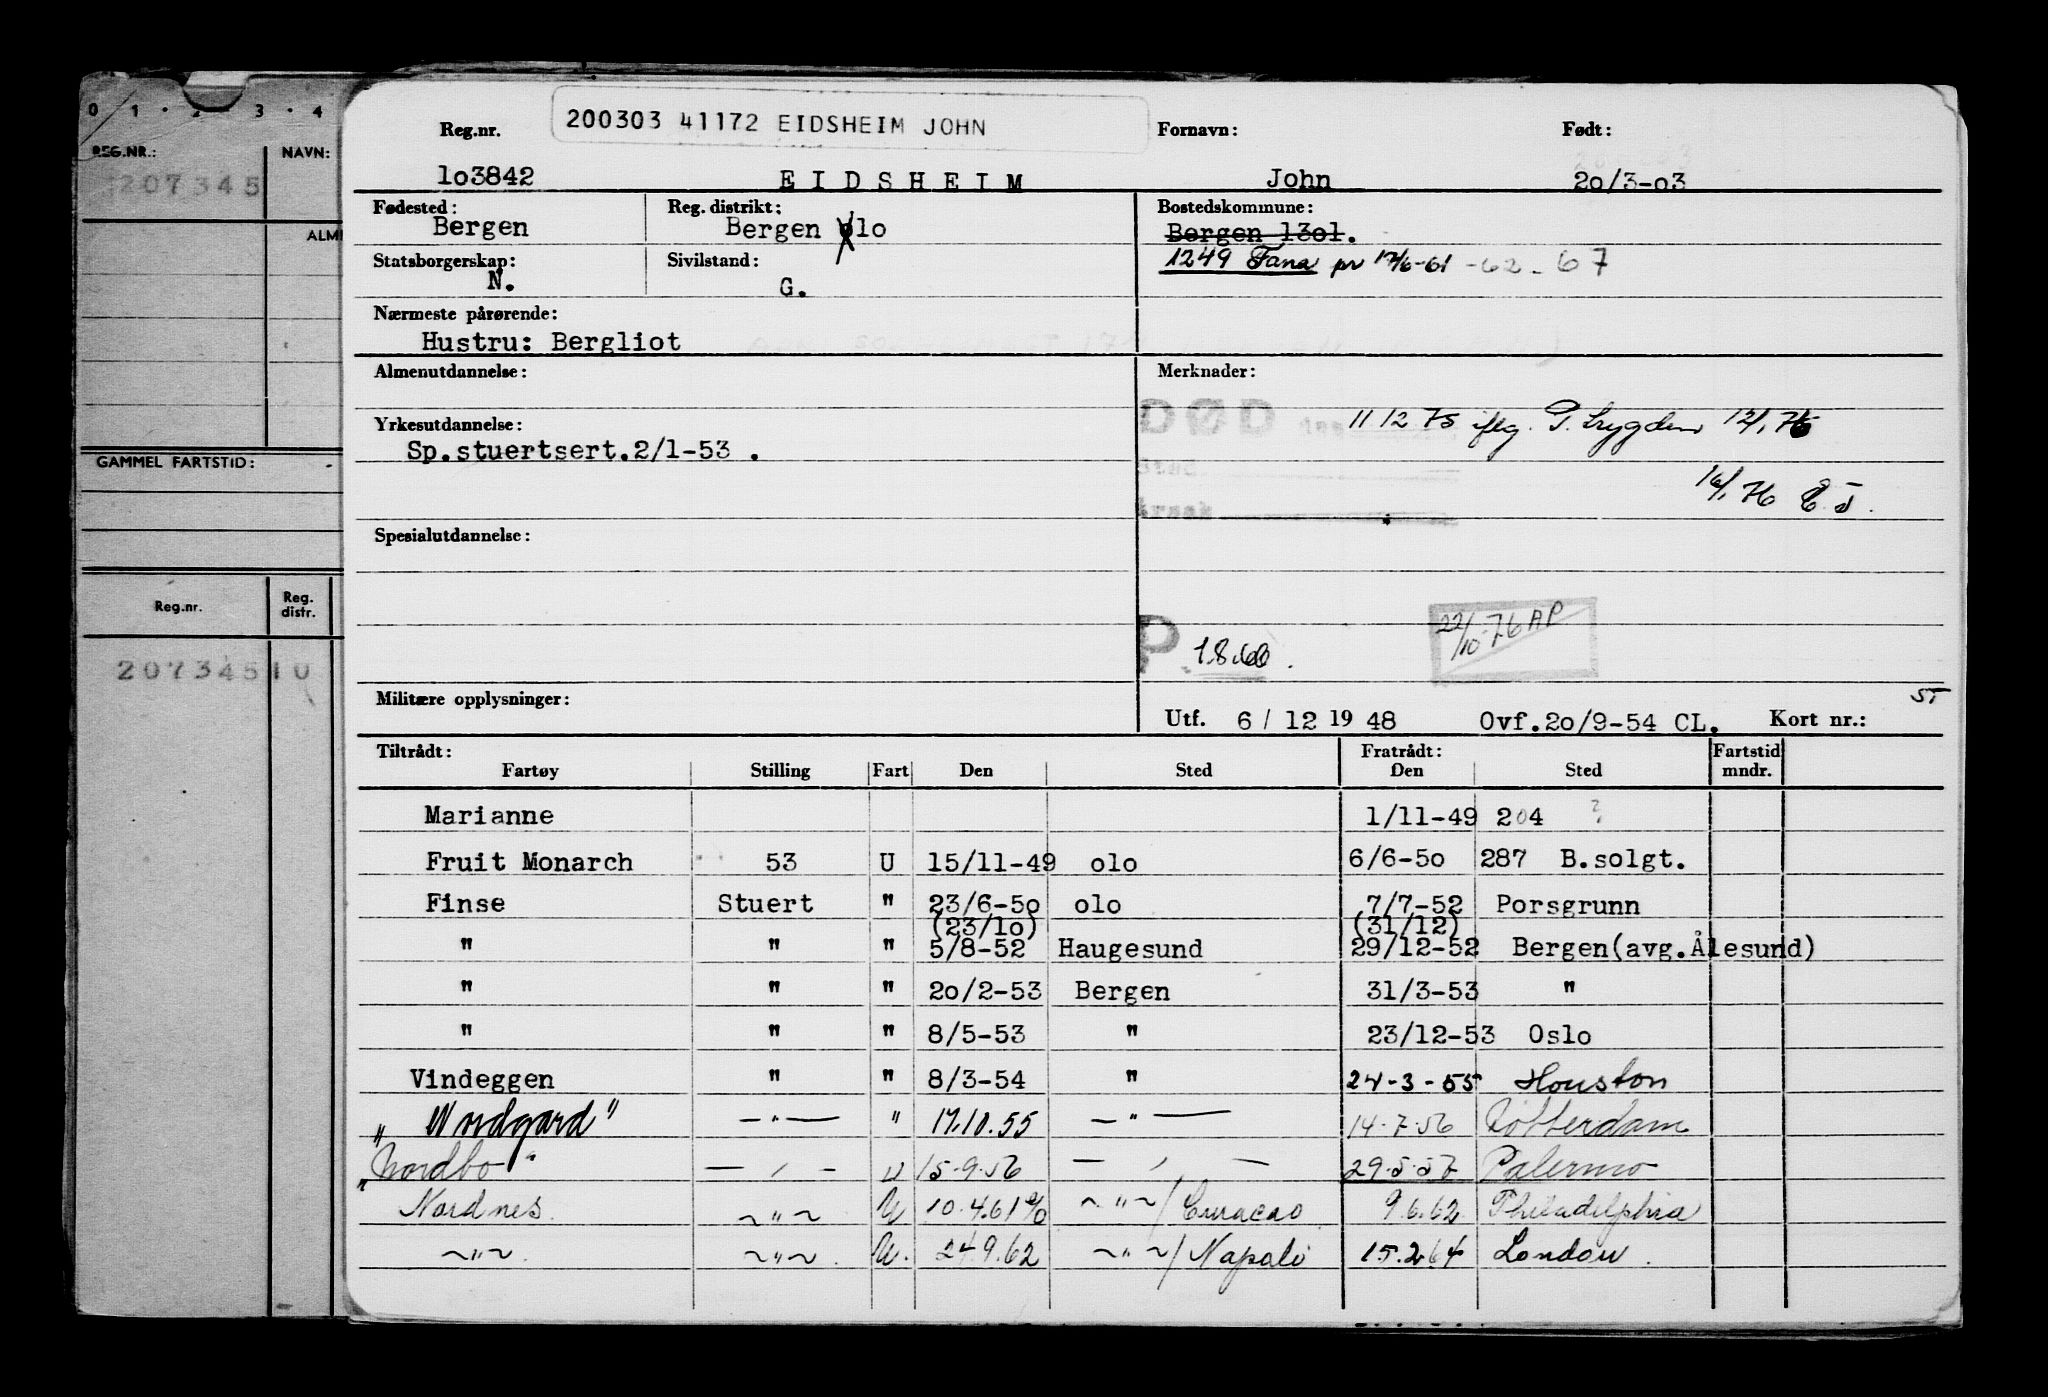 0 1 · 2 3 · 4
REG.NR.: NAVN:
207345
ALM
GAMMEL FARTSTID:
Reg.nr. Reg. distr.
207345 10
200303 41172 EIDSHEIM JOHN
Reg.nr. Fornavn: Født:
lo3842 EIDSHEIM John 2o/3-o3
Fødested: Reg. distrikt: Bostedskommune:
Bergen Bergen olo Bergen l3ol.
Statsborgerskap: Sivilstand: 1249 Fana pr 17/6-61 -62-67
N. G.
Nærmeste pårørende:
Hustru: Bergliot
Almenutdannelse: Merknader:
DØD 11 12 75 iflg. T. trygden 12/1 76
Yrkesutdannelse:
Sp.stuertsert.2/1-53 .
Sted
16/1 76 E.J.
Årsak
Spesialutdannelse:
P 1.8.60. 22/10-76 AP
Militære opplysninger: ST
Utf. 6 / 12 19 48 Ovf.2o/9-54 CL. Kort nr.:
Tiltrådt: Fratrådt: Fartstid
Fartøy Stilling Fart Den Sted Den Sted mndr.
Marianne 1/11-49 204 ?
Fruit Monarch 53 U 15/11-49 olo 6/6-5o 287 B.solgt.
Finse Stuert " 23/6-5o olo 7/7-52 Porsgrunn
(23/1o) (31/12)
" " " 5/8-52 Haugesund 29/12-52 Bergen(avg.Ålesund)
" " " 2o/2-53 Bergen 31/3-53 "
" " " 8/5-53 " 23/12-53 Oslo
Vindeggen " " 8/3-54 " 24-3-55 Houston
„Nordgard" —"— " 17.10.55 —"— 14.7.56 Rotterdam
„Nordbo" —,— U 15.9.56 —,— 29.5.57 Palermo
Nordnes. ~"~ U 10.4.61 % ~"~/Curacao 9.6.62 Philadelphia
~"~. ~"~. U. 24.9.62 ~"~/Napoli 15.2.64 London.